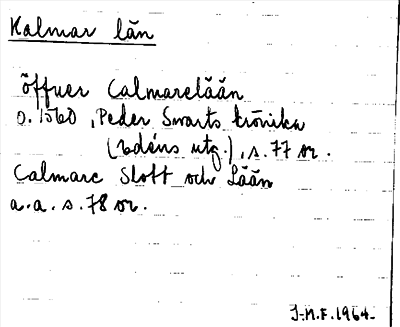 Kalmar län
öffuer Calmarelään
o. 1560, Peder Swarts krönika
(Edéns utg.), s. 77 or.
Calmare Slott och Lään
a.a. s. 78 or.
J.M.F. 1964.